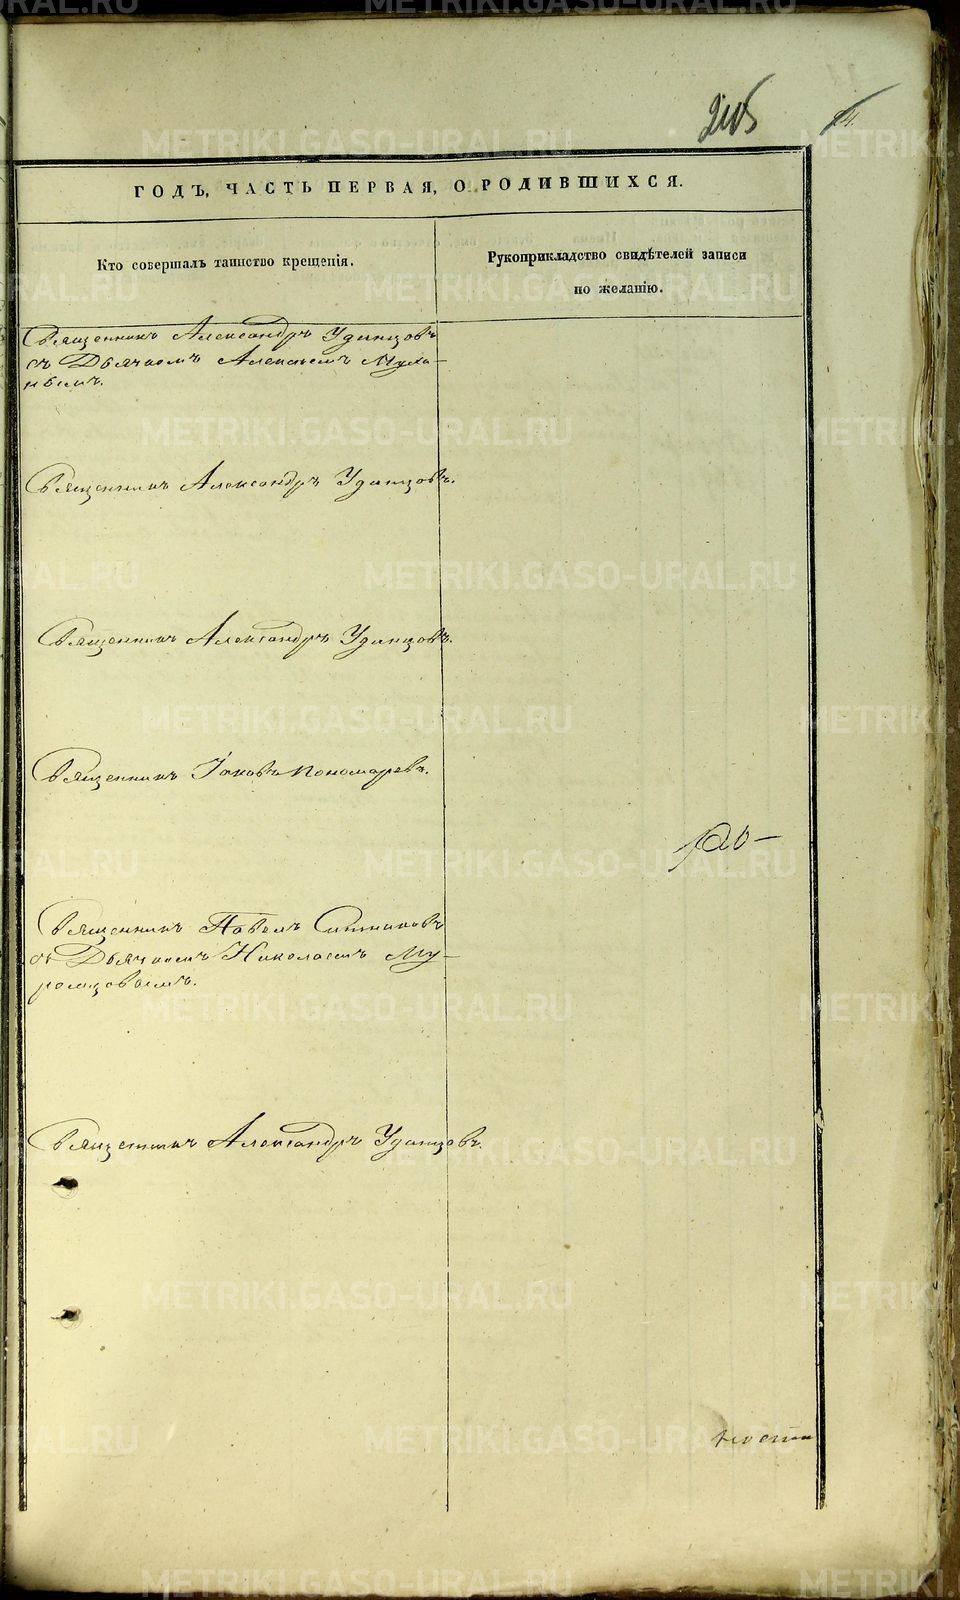 ГОДЪ, ЧАСТЬ ПЕРВАЯ, О РОДИВШИХСЯ.
Кто совершалъ таинство крещенія.
Рукоприкладство свидѣтелей записи
по желанію.
Священникъ Александръ Удинцовъ
съ Дьячкомъ Алексѣемъ Муха-
Священникъ Александръ Удинцовъ.
Священникъ Александръ Удинцовъ.
Священникъ Іаковъ Пономаревъ.
Священникъ Павелъ Ситниковъ
съ Дьячкомъ Николаемъ Му-
ромцовымъ.
Священникъ Александръ Удинцовъ.
METRIKI.GASO-URAL.RU